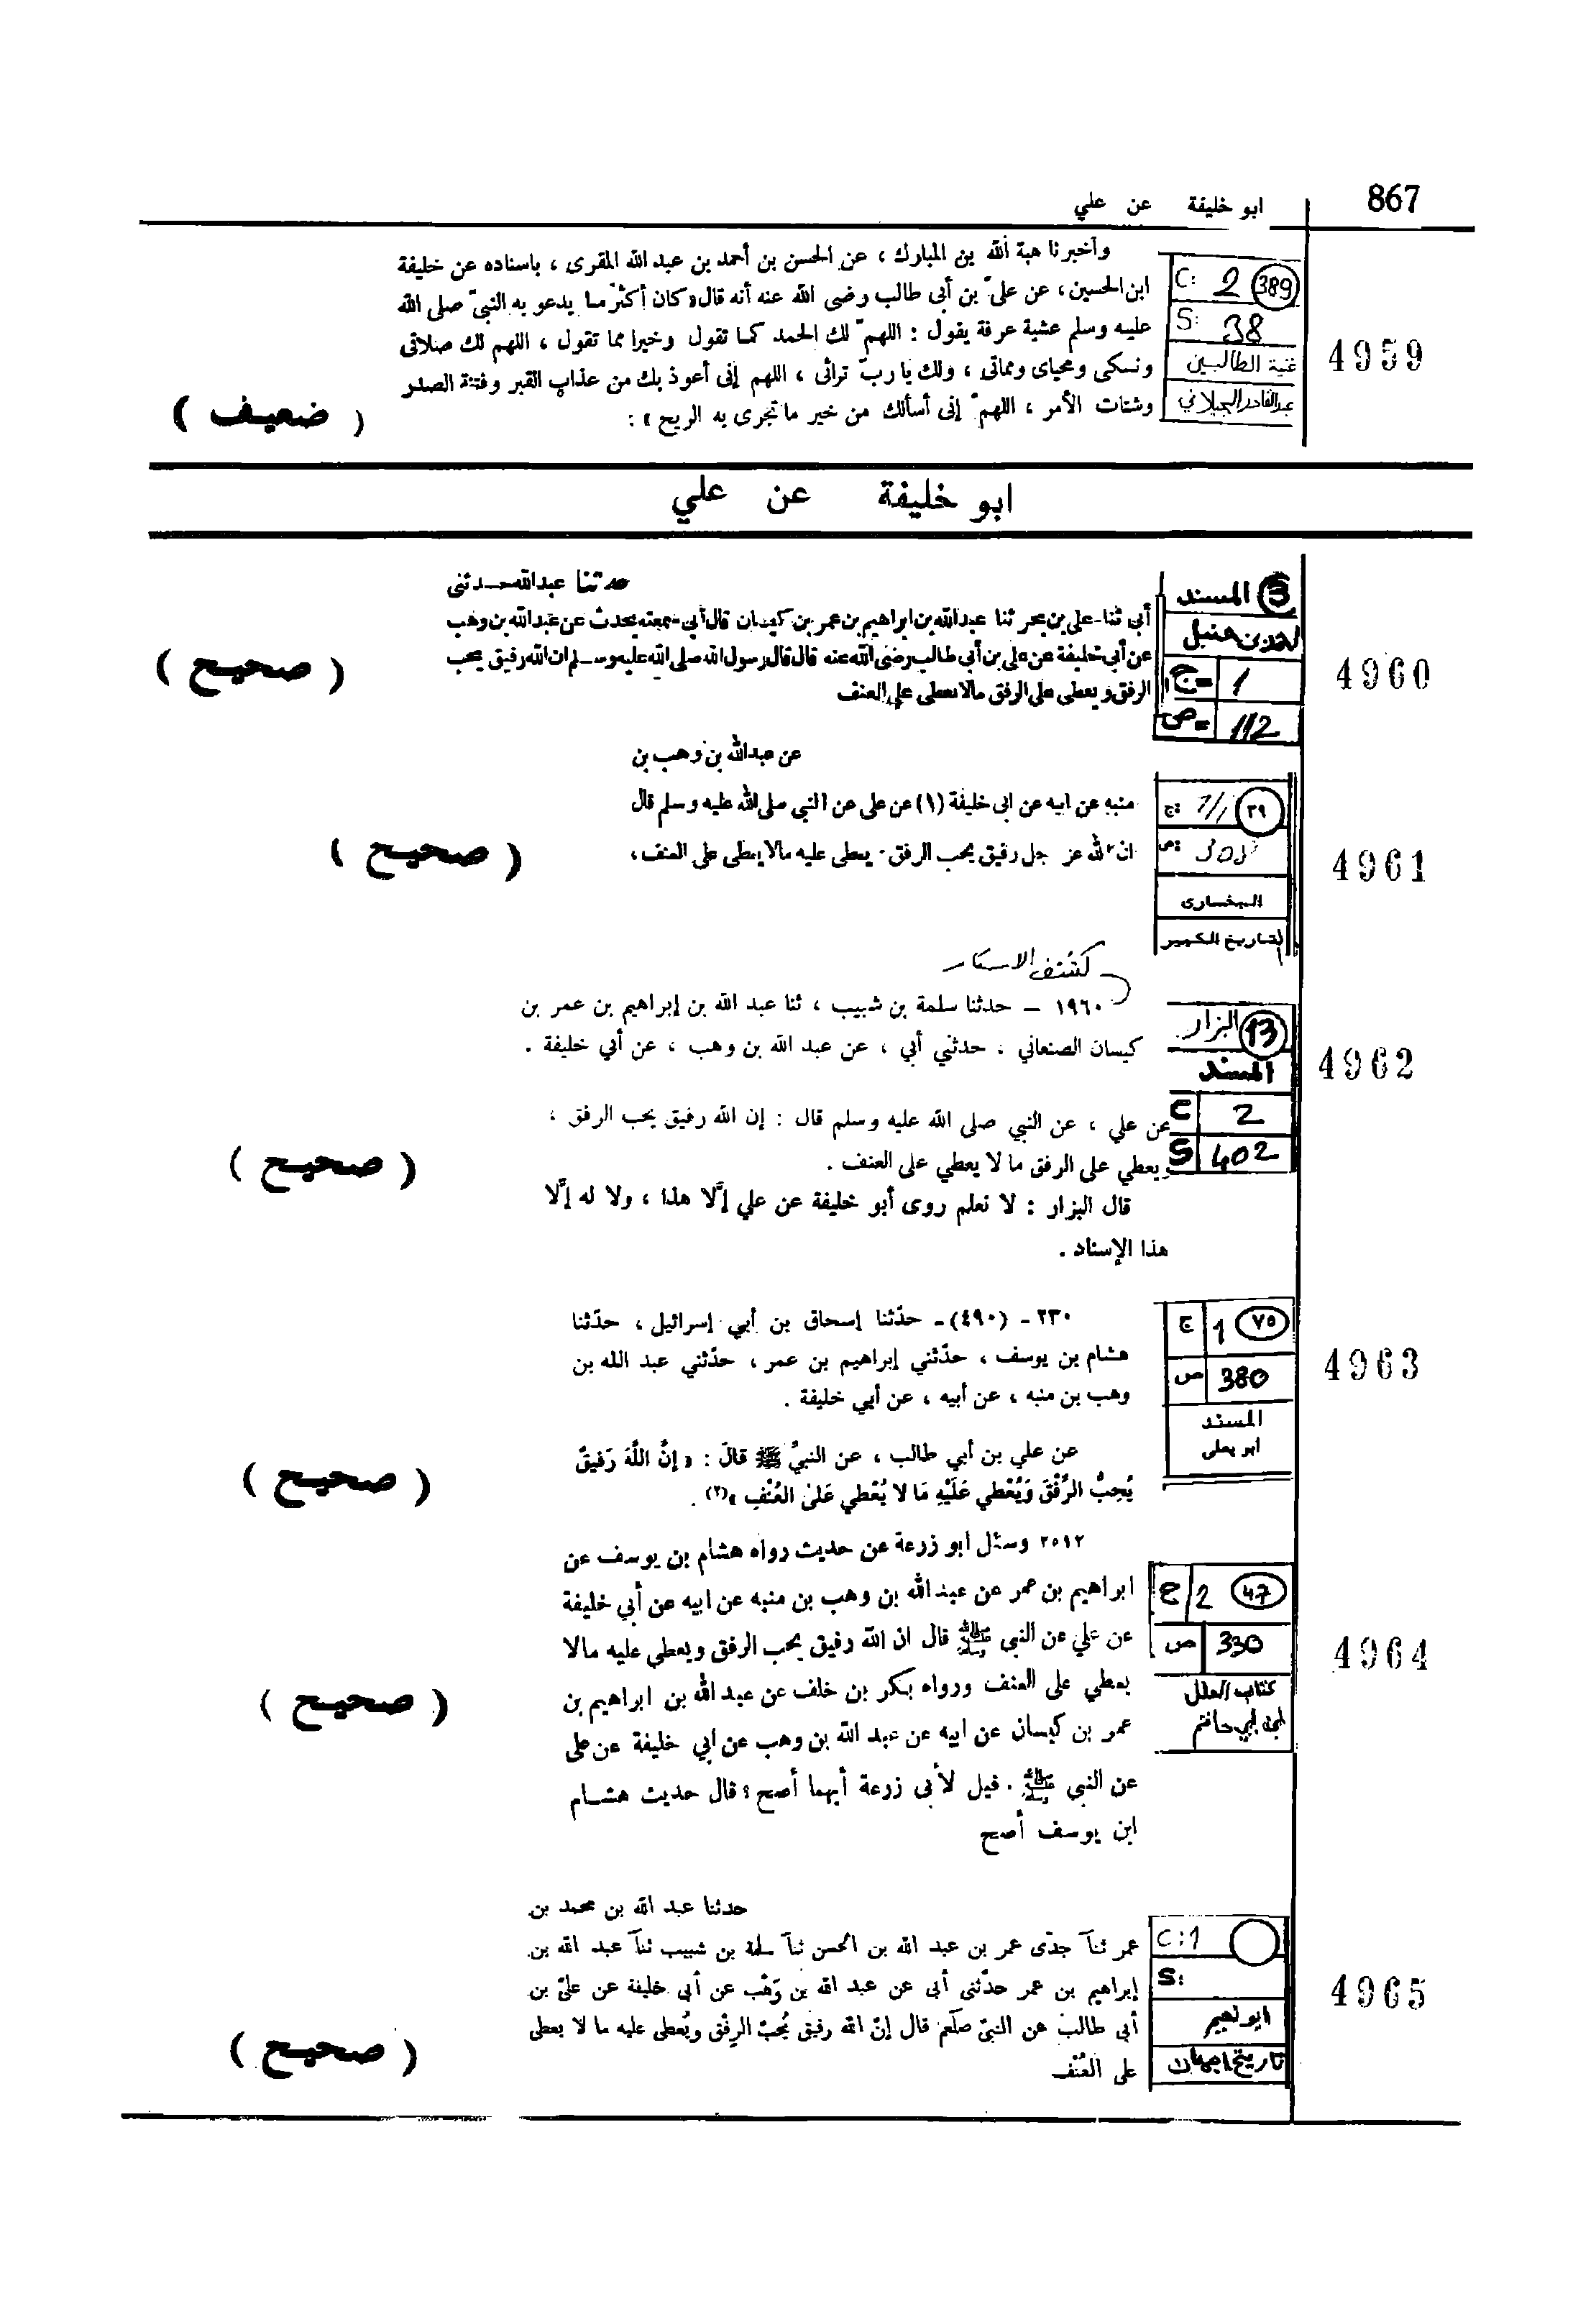 867
ابو خليفة عن علي
وأخبرنا هبة الله بن المبارك ، عن الحسن بن أحمد بن عبد الله المقرى ، باسناده عن خليفة
ابن الحسين ، عن علىّ بن أبى طالب رضى الله عنه أنه قال « كان أكثر ما يدعو به النبىّ صلى الله
عليه وسلم عشية عرفة يقول : اللهمّ لك الحمد كما تقول وخيرا مما تقول ، اللهم لك صلاتى
ونسكى ومحياى ومماتى ، ولك يا ربّ تراثى ، اللهم إنى أعوذ بك من عذاب القبر وفتنة الصدر
وشتات الأمر ، اللهمّ إنى أسألك من خير ما تجرى به الريح » :
C: 2 389
S: 38
غنية الطالبين
عبد القادر الجيلاني
4959
( ضعيف )
ابو خليفة عن علي
حدثنا عبدالله حدثنى
أبى ثنا على بن بحر ثنا عبدالله بن ابراهيم بن عمر بن كيسان قال أبى سمعته يحدث عن عبدالله بن وهب
عن أبى خليفة عن على بن أبى طالب رضى الله عنه قال قال رسول الله صلى الله عليه وسلم ان الله رفيق يحب
الرفق ويعطى على الرفق مالا يعطى على العنف
5 المسند
احمد بن حنبل
ج= 1
ص= 112
4960
( صحيح )
عن عبدالله بن وهب بن
منبه عن ابيه عن ابى خليفة (١) عن على عن النبى صلى الله عليه وسلم قال
ان الله عز جل رفيق يحب الرفق يعطى عليه مالا يعطى على العنف ،
ج: ٣٩
ص:
البخارى
التاريخ الكبير
4961
( صحيح )
كشف الاستار
١٩٦٠ – حدثنا سلمة بن شبيب ، ثنا عبد الله بن إبراهيم بن عمر بن
كيسان الصنعاني ، حدثني أبي ، عن عبد الله بن وهب ، عن أبي خليفة .
عن علي ، عن النبي صلى الله عليه وسلم قال : إن الله رفيق يحب الرفق ،
ويعطي على الرفق ما لا يعطي على العنف .
قال البزار : لا نعلم روى أبو خليفة عن علي إلَّا هذا ، ولا له إلَّا
هذا الإسناد .
13 البزار
المسند
C 2
S 402
4962
( صحيح )
٢٣٠ - (٤٩٠) - حدّثنا إسحاق بن أبي إسرائيل ، حدّثنا
هشام بن يوسف ، حدّثني إبراهيم بن عمر ، حدّثني عبد الله بن
وهب بن منبه ، عن أبيه ، عن أبي خليفة .
عن علي بن أبي طالب ، عن النبيِّ ﷺ قالَ : « إنَّ اللَّهَ رَفيقٌ
يُحِبُّ الرِّفْقَ وَيُعْطي عَلَيْهِ مَا لا يُعْطي عَلىٰ العُنْفِ »(٢) .
ج 1 ٧٥
ص 380
المسند
أبو يعلى
4963
( صحيح )
٢٥١٢ وسئل ابو زرعة عن حديث رواه هشام بن يوسف عن
ابراهيم بن عمر عن عبد الله بن وهب بن منبه عن ابيه عن أبي خليفة
عن علي عن النبي ﷺ قال ان الله رفيق يحب الرفق ويعطي عليه مالا
يعطي على العنف ورواه بكر بن خلف عن عبد الله بن ابراهيم بن
عمر بن كيسان عن ابيه عن عبد الله بن وهب عن أبي خليفة عن على
عن النبي ﷺ . قيل لأبى زرعة أيهما أصح ؟ قال حديث هشام
ابن يوسف أصح
ج 2 47
ص 330
كتاب العلل
لابن ابي حاتم
4964
( صحيح )
حدثنا عبد الله بن محمد بن
عمر ثنآ جدّى عمر بن عبد الله بن الحسن ثنآ سلمة بن شبيب ثنآ عبد الله بن
إبراهيم بن عمر حدّثنى أبى عن عبد الله بن وَهْب عن أبى خليفة عن علىّ بن
أبى طالب عن النبىّ صلّعم قال إنّ الله رفيق يُحبّ الرِفْق ويُعطى عليه ما لا يعطى
على العُنْف
C: 1
S:
ابو نعيم
تاريخ اصبهان
4965
( صحيح )